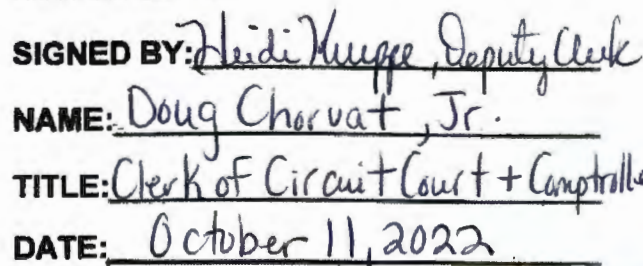 SIGNED BY: Heidi Kuppe, Deputy Clerk
NAME: Doug Chorvat, Jr.
TITLE: Clerk of Circuit Court + Comptrolle
DATE: October 11, 2022